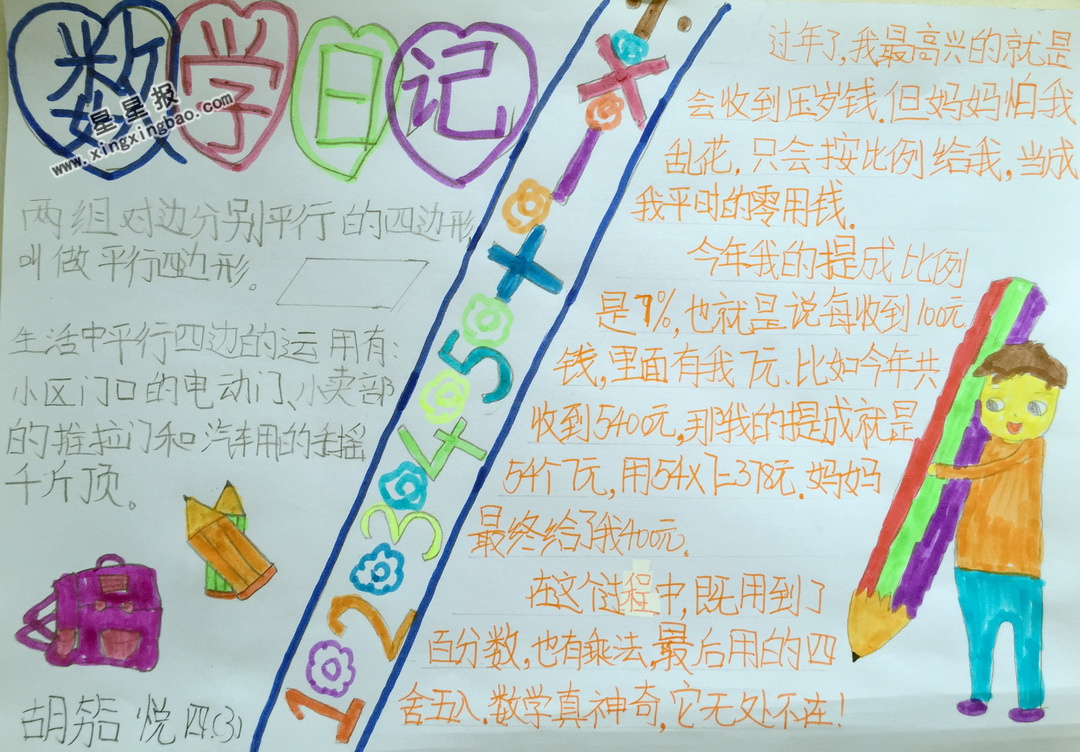 数学日记
星星报
www.xingxingbao.com
两组对边分别平行的四边形
叫做平行四边形。
生活中平行四边的运用有:
小区门口的电动门、小卖部
的推拉门和汽车用的手摇
千斤顶。
胡 悦 四(3)
1 2 3 4 5 + - × ÷
过年了,我最高兴的就是
会收到压岁钱.但妈妈怕我
乱花,只会按比例给我,当成
我平时的零用钱.
今年我的提成比例
是7%,也就是说每收到100元
钱,里面有我7元.比如今年共
收到5400元,那我的提成就是
54个7元,用54×7=378元.妈妈
最终给了我400元.
在这个过程中,既用到了
百分数,也有乘法,最后用的四
舍五入.数学真神奇,它无处不在!